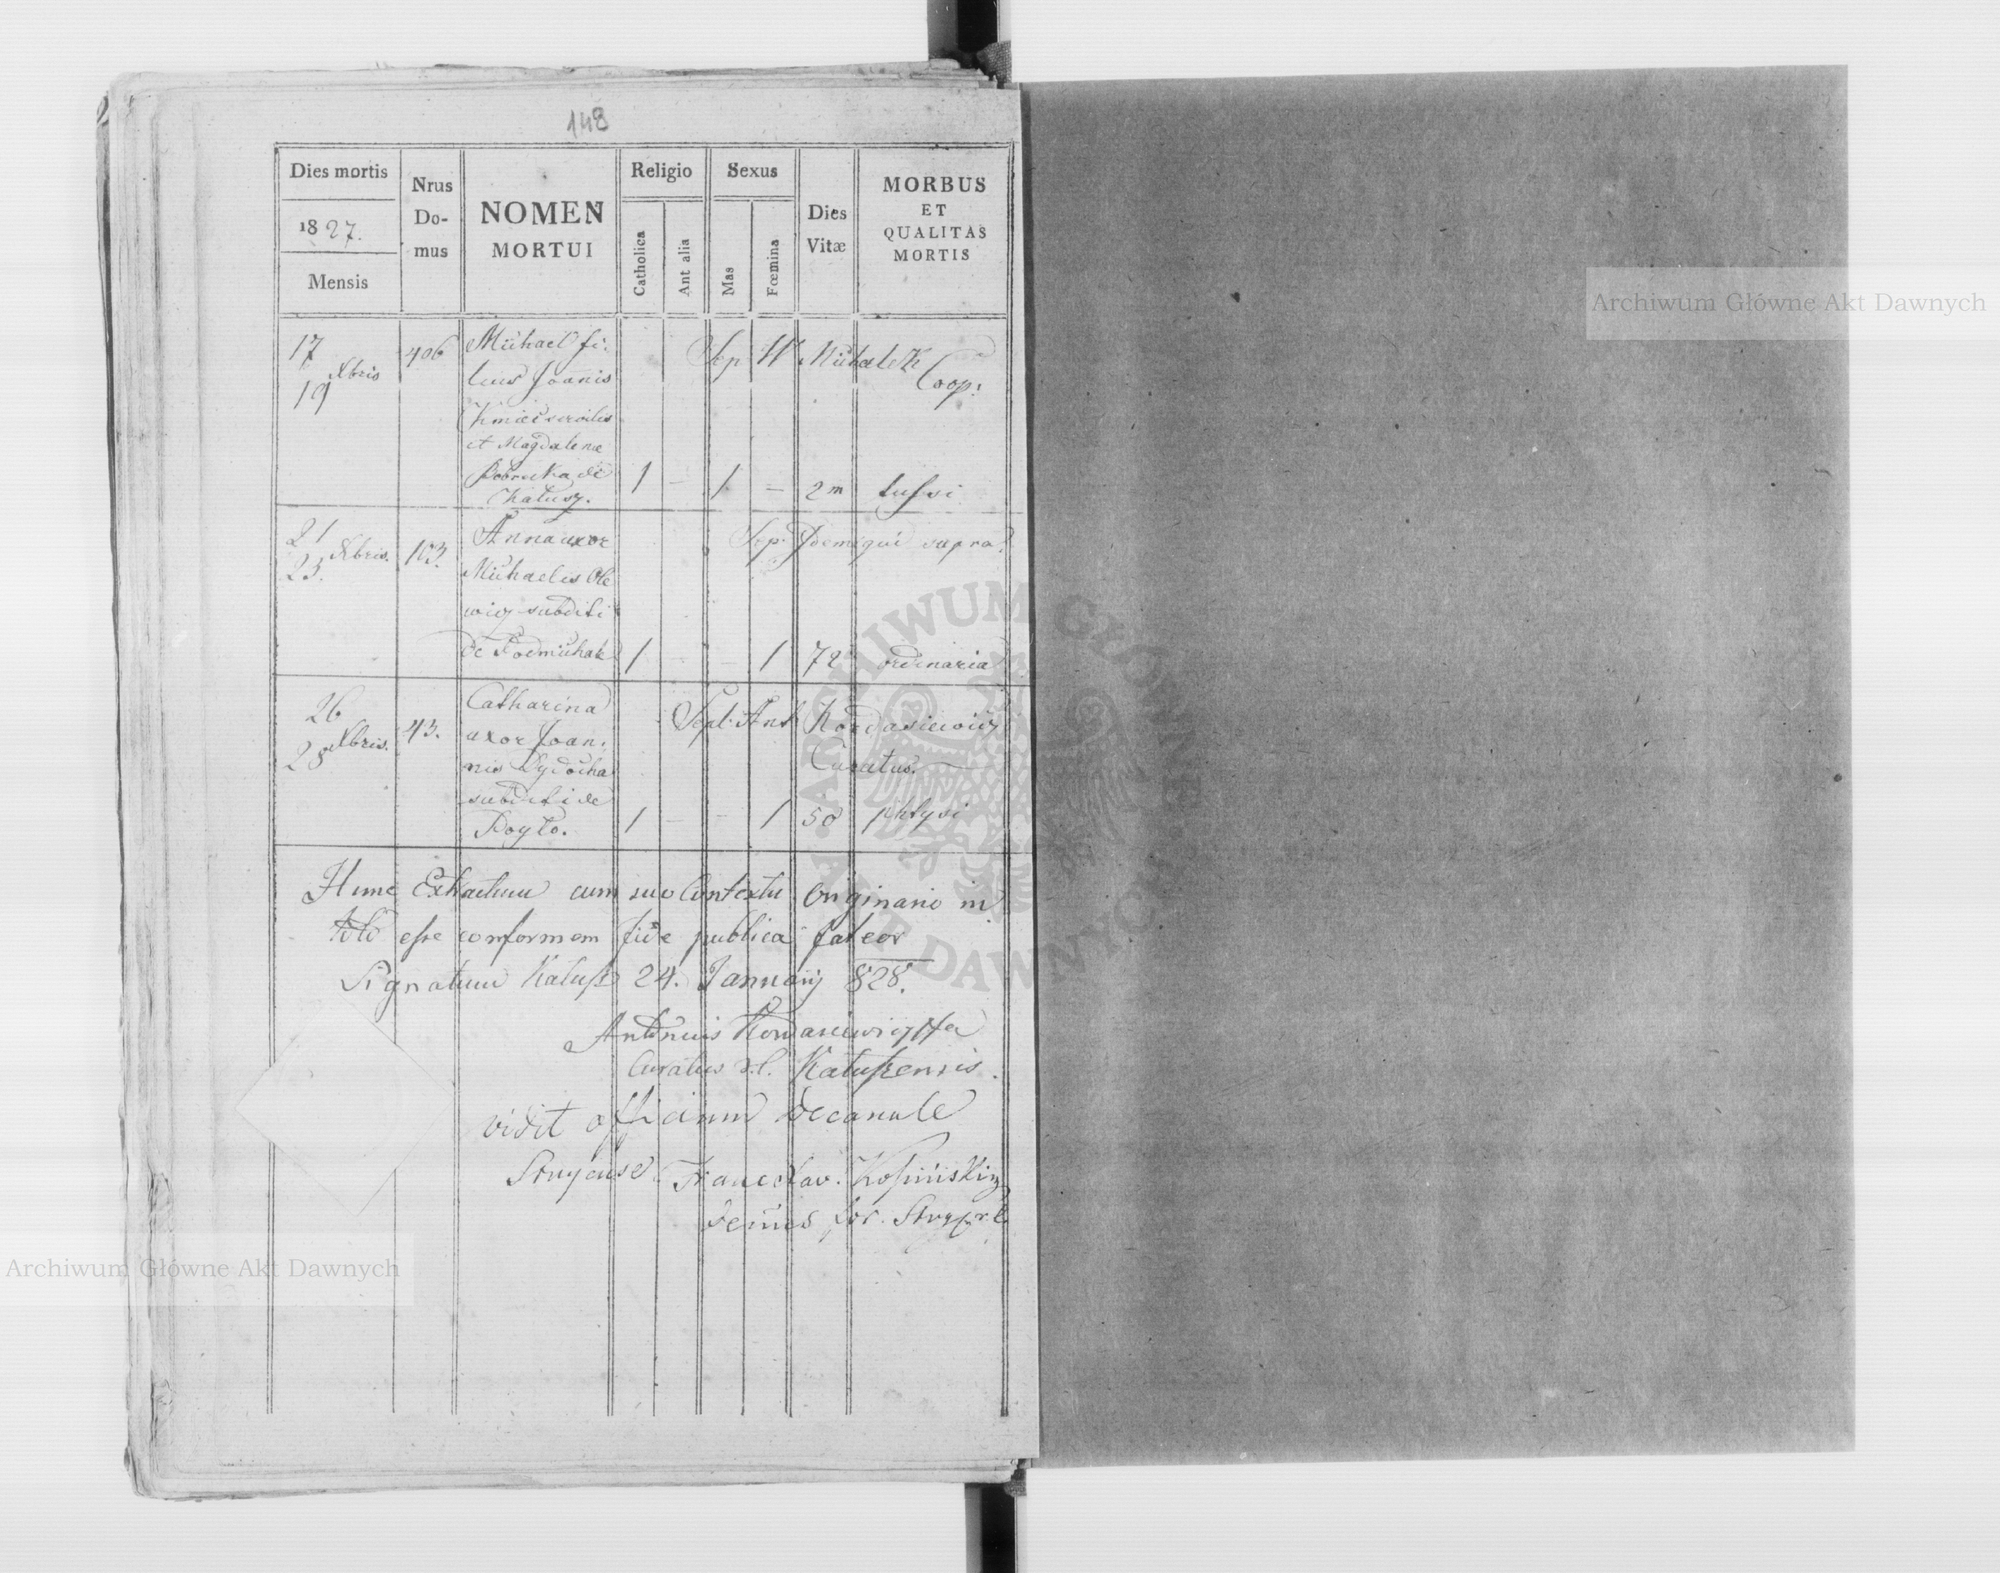 148
Dies mortis
1827.
Mensis
Nrus
Do-
mus
NOMEN
MORTUI
Religio
Catholica
Aut alia
Sexus
Mas
Fœmina
Dies
Vitæ
MORBUS
ET
QUALITAS
MORTIS
17
19 Xbris
406
Michael fi-
lius Joannis
Kmieć servilis
et Magdalenae
de
Kalusz.
Sep: W Michalek
Coop:
1 — 1 — 2m tussi
21
23. Xbris.
103.
Anna uxor
Michaelis Ole
wicz subditi
de Podmichale
Sep: Idem qui supra
1 — — 1 72 ordinaria
26
28 Xbris.
43.
Catharina
uxor Joan-
nis Dydocha
subditi de
Sepl: Ant Kordasiewicz
Curatus.
1 — — 1 50 phtysi
Hunc Extractum cum suo Contextu Originario in
toto esse conformem fide publica fateor
Signatum Kalusz 24. January 828.
Antonius Kordasiewicz
Curatus r.l. Kaluszensis.
vidit officium Decanale
Stryense.
Archiwum Główne Akt Dawnych
ARCHIWUM GŁÓWNE AKT DAWNYCH
Archiwum Główne Akt Dawnych